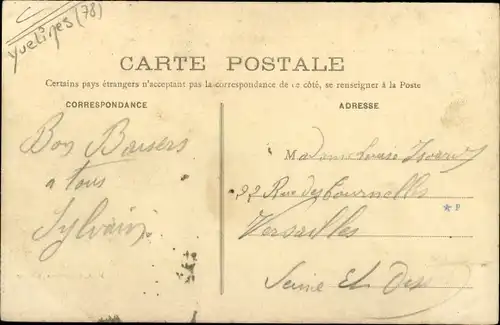 Yvelines (78)
CARTE POSTALE
Certains pays étrangers n'acceptant pas la correspondance de ce côté, se renseigner à la Poste
CORRESPONDANCE
ADRESSE
Bons Baisers
a tous
Sylvain
Madame Louise
22 Rue des Tournelles
Versailles
Seine Et Oise
* P